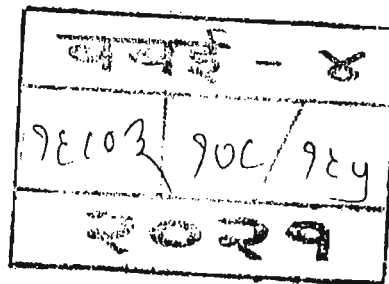 बबई - ४
१६८०३ १०८ / १६५
२०२१